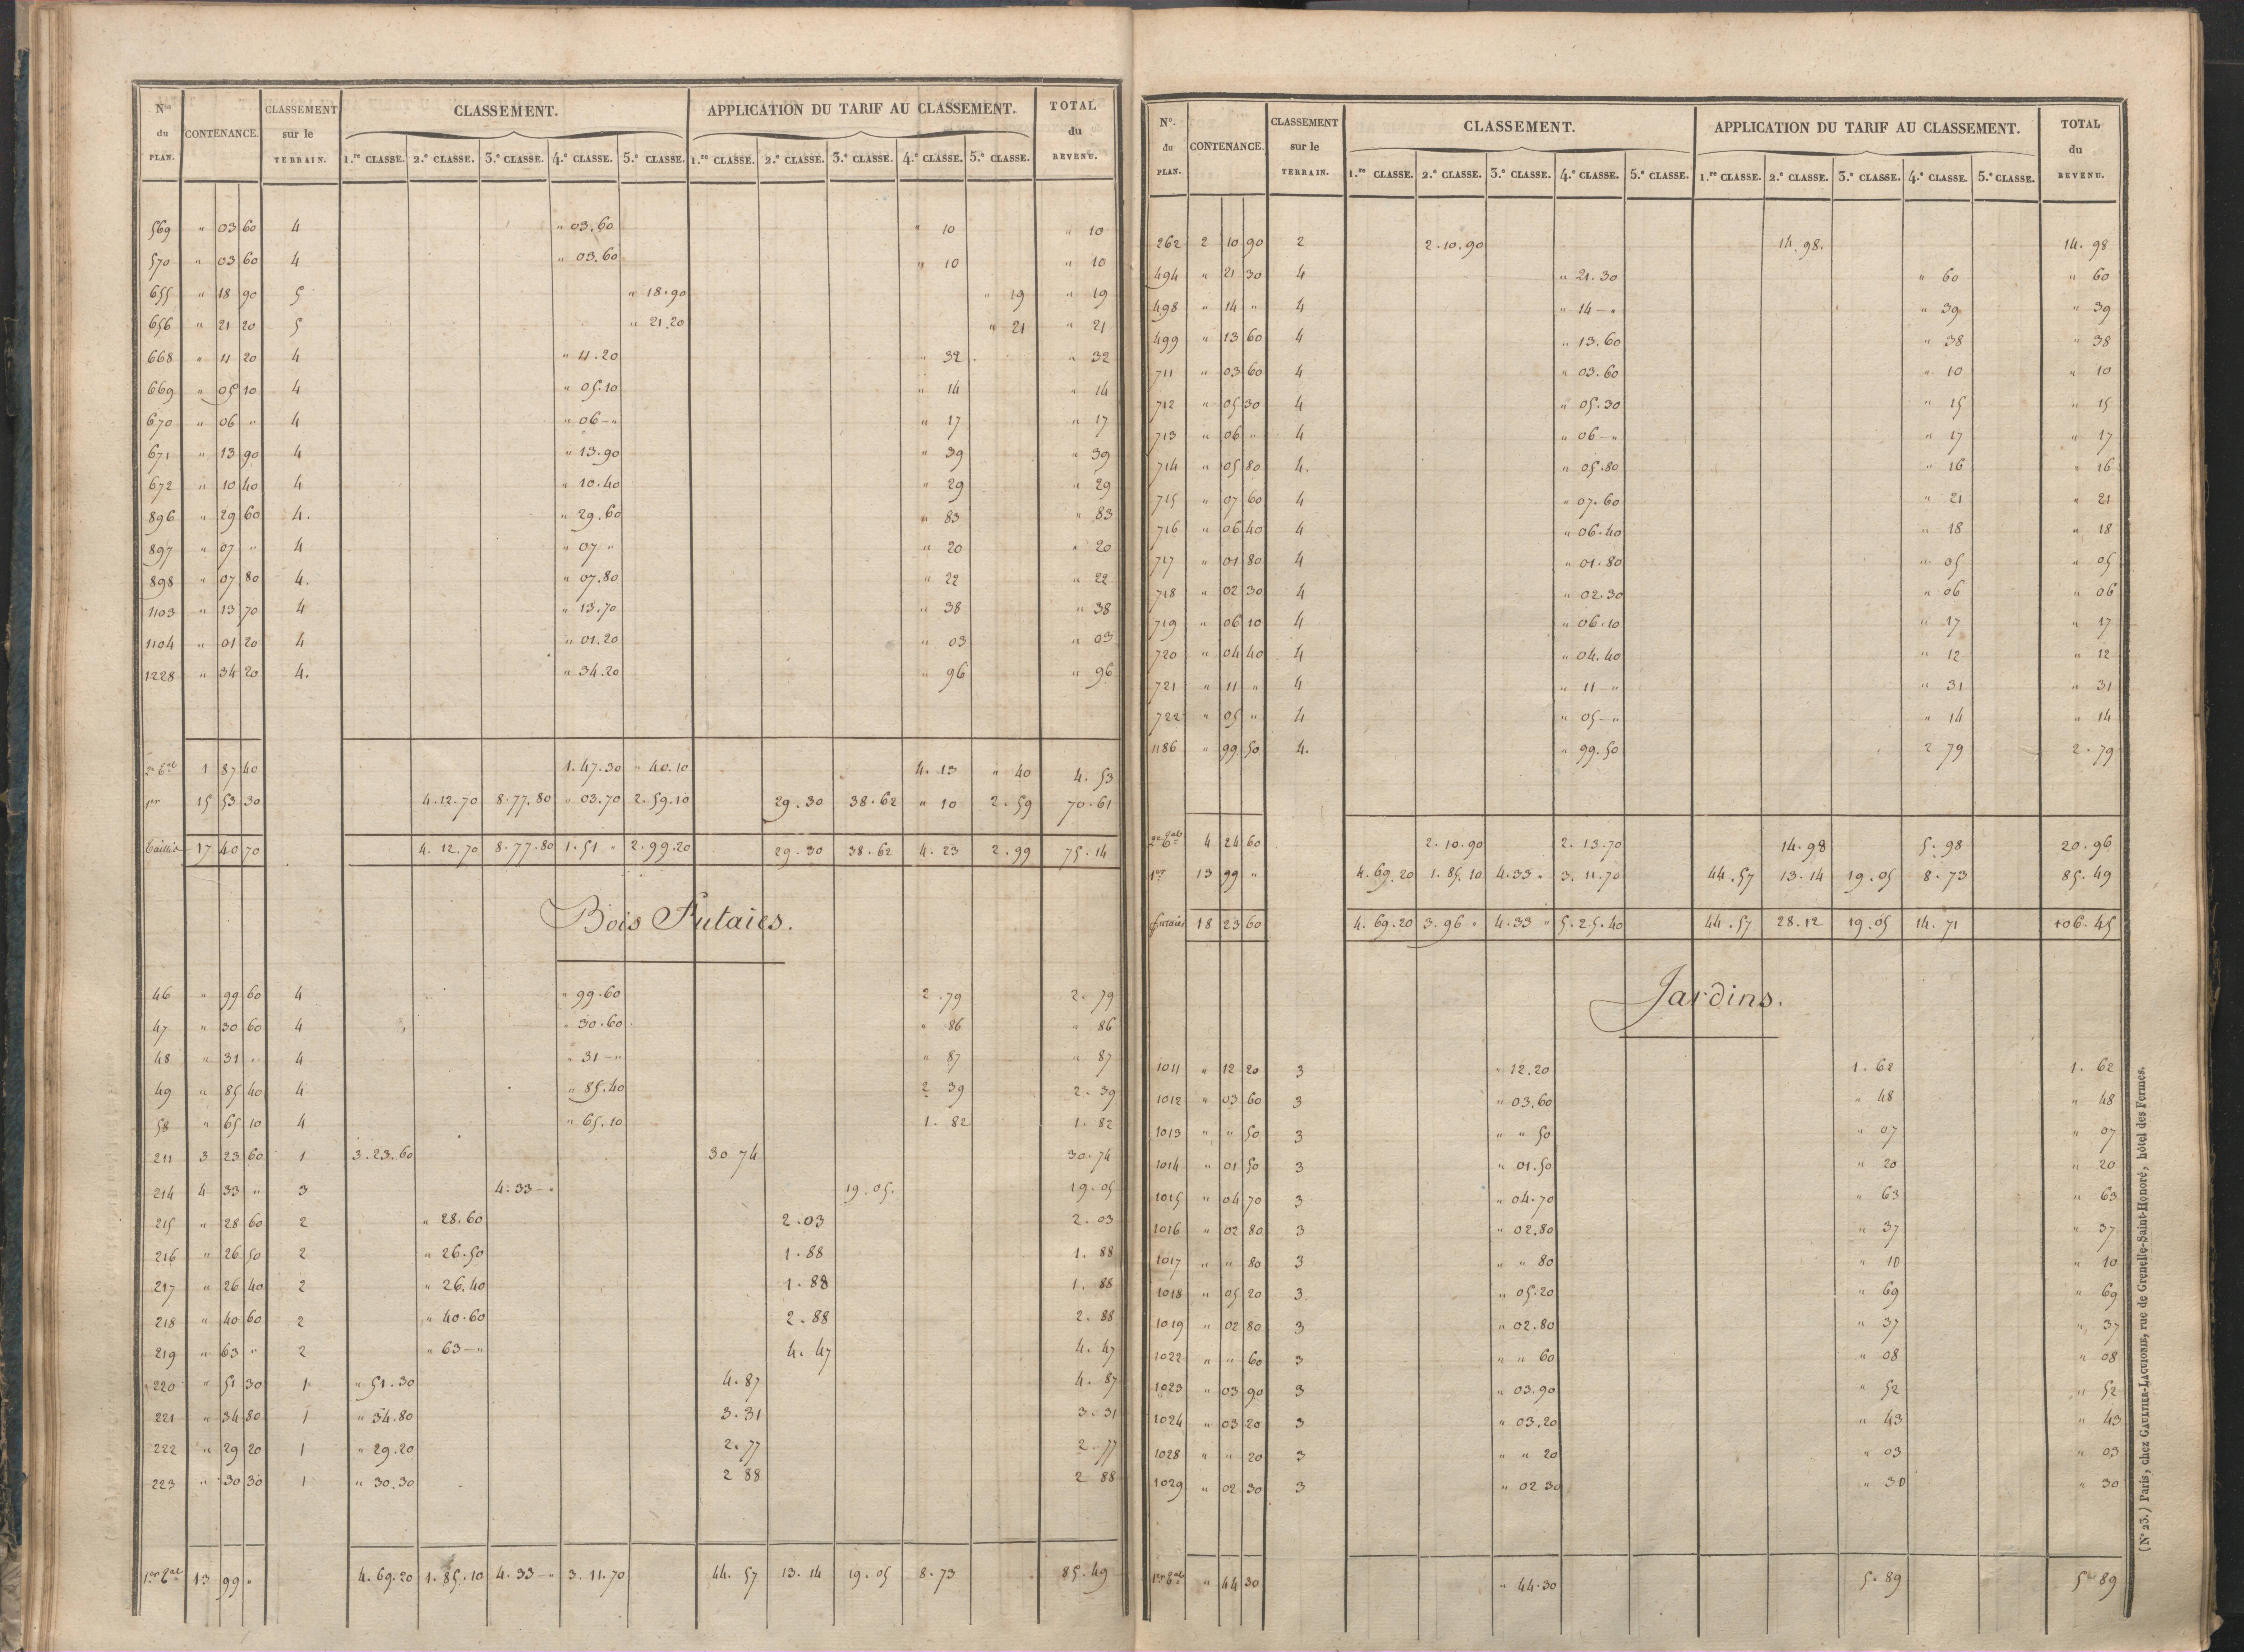 Nos du PLAN. CONTENANCE. CLASSEMENT sur le TERRAIN. CLASSEMENT. APPLICATION DU TARIF AU CLASSEMENT. TOTAL du REVENU.
1.re CLASSE. 2.e CLASSE. 3.e CLASSE. 4.e CLASSE. 5.e CLASSE. 1.re CLASSE. 2.e CLASSE. 3.e CLASSE. 4.e CLASSE. 5.e CLASSE.
569 " 03 60 4 " 03.60 " 10 " 10
570 " 03 60 4 " 03.60 " 10 " 10
655 " 18 90 5 " 18.90 " 19 " 19
656 " 21 20 5 " 21.20 " 21 " 21
668 " 11 20 4 " 11.20 " 32 " 32
669 " 05 10 4 " 05.10 " 14 " 14
670 " 06 " 4 " 06-" " 17 " 17
671 " 13 90 4 " 13.90 " 39 " 39
672 " 10 40 4 " 10.40 " 29 " 29
896 " 29 60 4. " 29.60 " 83 " 83
897 " 07 " 4 " 07 " " 20 " 20
898 " 07 80 4. " 07.80 " 22 " 22
1103 " 13 70 4 " 13.70 " 38 " 38
1104 " 01 20 4 " 01.20 " 03 " 03
1228 " 34 20 4. " 34.20 " 96 " 96
1 87 40 1.47.30 " 40.10 4.13 " 40 4.53
1er 15 53 30 4.12.70 8.77.80 " 03.70 2.59.10 29.30 38.62 " 10 2.59 70.61
17 40 70 4.12.70 8.77.80 1.51 " 2.99.20 29.30 38.62 4.23 2.99 75.14
Bois Futaies.
46 " 99 60 4 " 99.60 2.79 2.79
47 " 30 60 4 " 30.60 " 86 " 86
48 " 31 " 4 " 31-" " 87 " 87
49 " 85 40 4 " 85.40 2 39 2.39
58 " 65 10 4 " 65.10 1.82 1.82
211 3 23 60 1 3.23.60 30 74 30.74
214 4 33 " 3 4.33-" 19.05. 19.05
215 " 28 60 2 " 28.60 2.03 2.03
216 " 26 50 2 " 26.50 1.88 1.88
217 " 26 40 2 " 26.40 1.88 1.88
218 " 40 60 2 " 40.60 2.88 2.88
219 " 63 " 2 " 63-" 4.47 4.47
220 " 51 30 1 " 51.30 4.87 4.87
221 " 34 80 1 " 34.80 3.31 3.31
222 " 29 20 1 " 29.20 2.77 2.77
223 " 30 30 1 " 30.30 2 88 2 88
13 99 " 4.69.20 1.85.10 4.33-" 3.11.70 44.57 13.14 19.05 8.73 85.49
No. du PLAN. CONTENANCE. CLASSEMENT sur le TERRAIN. CLASSEMENT. APPLICATION DU TARIF AU CLASSEMENT. TOTAL du REVENU.
1.re CLASSE. 2.e CLASSE. 3.e CLASSE. 4.e CLASSE. 5.e CLASSE. 1.re CLASSE. 2.e CLASSE. 3.e CLASSE. 4.e CLASSE. 5.e CLASSE.
262 2 10 90 2 2.10.90 14.98. 14.98
494 " 21 30 4 " 21.30 " 60 " 60
498 " 14 " 4 " 14-" " 39 " 39
499 " 13 60 4 " 13.60 " 38 " 38
711 " 03 60 4 " 03.60 " 10 " 10
712 " 05 30 4 " 05.30 " 15 " 15
713 " 06 " 4 " 06-" " 17 " 17
714 " 05 80 4. " 05.80 " 16 " 16
715 " 07 60 4 " 07.60 " 21 " 21
716 " 06 40 4 " 06.40 " 18 " 18
717 " 01 80 4 " 01.80 " 05 " 05
718 " 02 30 4 " 02.30 " 06 " 06
719 " 06 10 4 " 06.10 " 17 " 17
720 " 04 40 4 " 04.40 " 12 " 12
721 " 11 " 4 " 11-" " 31 " 31
722 " 05 " 4 " 05-" " 14 " 14
1186 " 99 50 4. " 99.50 2 79 2.79
4 24 60 2.10.90 2.13.70 14.98 5.98 20.96
1er 13 99 " 4.69.20 1.85.10 4.33 " 3.11.70 44.57 13.14 19.05 8.73 85.49
futaies 18 23 60 4.69.20 3.96 " 4.33 " 5.25.40 44.57 28.12 19.05 14.71 106.45
Jardins.
1011 " 12 20 3 " 12.20 1.62 1.62
1012 " 03 60 3 " 03.60 " 48 " 48
1013 " " 50 3 " " 50 " 07 " 07
1014 " 01 50 3 " 01.50 " 20 " 20
1015 " 04 70 3 " 04.70 " 63 " 63
1016 " 02 80 3 " 02.80 " 37 " 37
1017 " " 80 3 " " 80 " 10 " 10
1018 " 05 20 3. " 05.20 " 69 " 69
1019 " 02 80 3 " 02.80 " 37 " 37
1022 " " 60 3 " " 60 " 08 " 08
1023 " 03 90 3 " 03.90 " 52 " 52
1024 " 03 20 3 " 03.20 " 43 " 43
1028 " " 20 3 " " 20 " 03 " 03
1029 " 02 30 3 " 02 30 " 30 " 30
" 44 30 " 44.30 5.89 5 89
(No 23.) Paris, chez GAULTIER-LAGUIONIE, rue de Grenelle-Saint-Honoré, hôtel des Fermes.